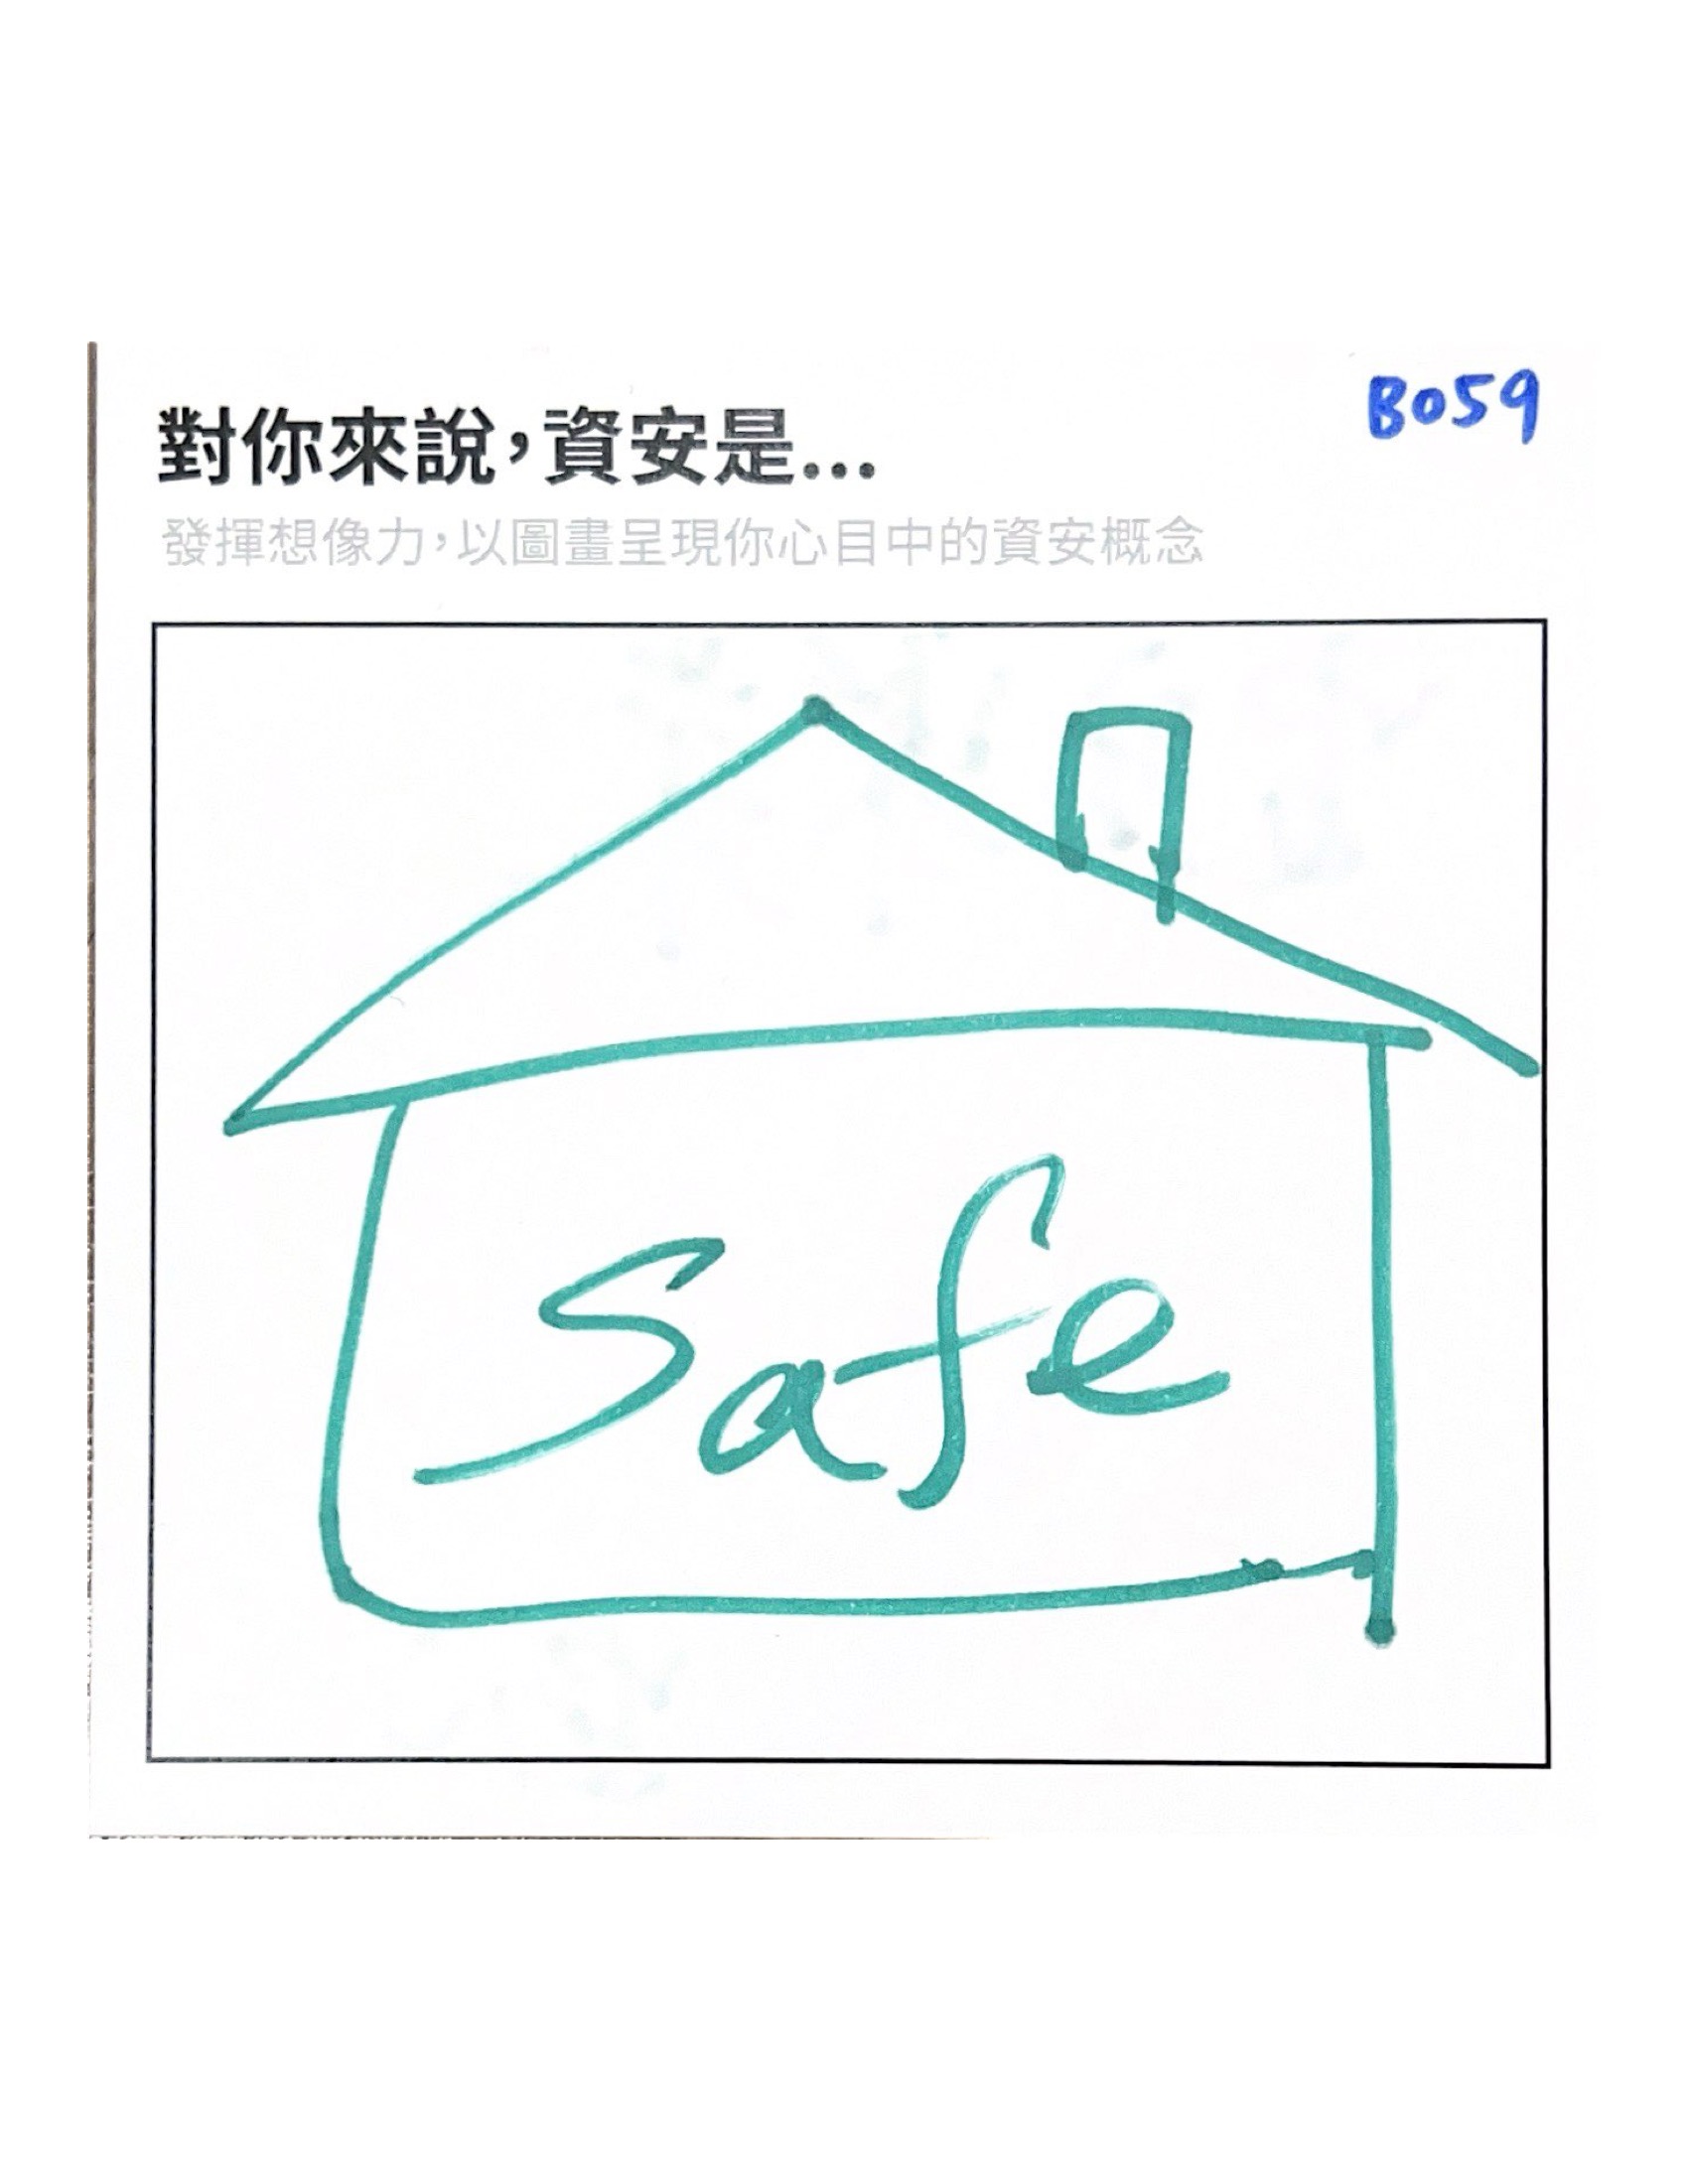 B059
對你來說，資安是...
發揮想像力，以圖畫呈現你心目中的資安概念
Safe